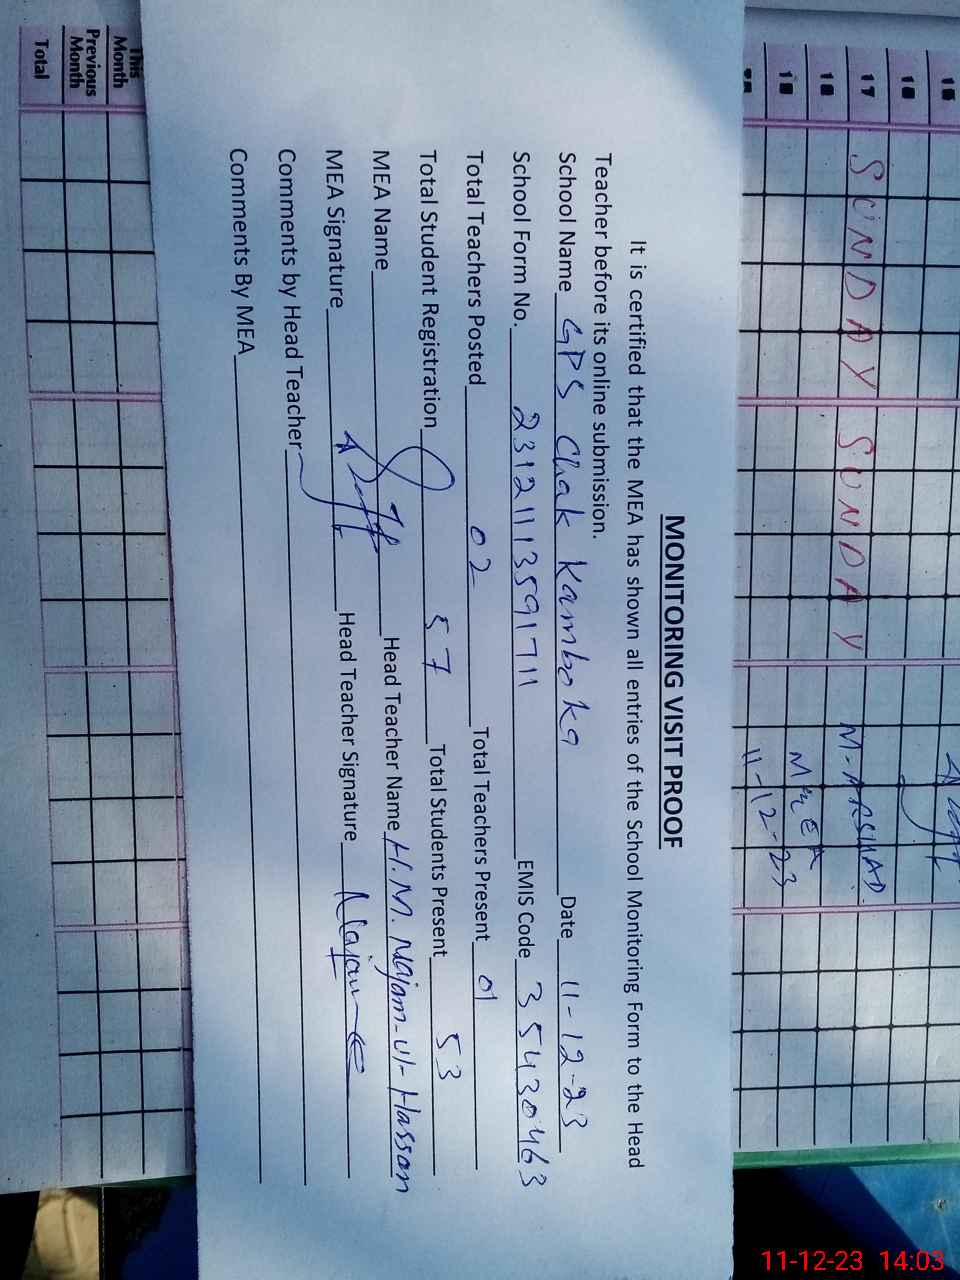 MONITORING VISIT PROOF
It is certified that the MEA has shown all entries of the School Monitoring Form to the Head
Teacher before its online submission.
School Name GPS Chak Kamboka Date 11-12-23
School Form No. 2312111359171 11 EMIS Code 35430463
Total Teachers Posted 02 Total Teachers Present 01
Total Student Registration 57 Total Students Present 53
MEA Name Head Teacher Name H.M. Najam-ul-Hassan
MEA Signature Head Teacher Signature
Comments by Head Teacher
Comments By MEA
16
17 SUNDAY SUNDAY M. ARSHAD
18 MEA
19 11-12-23
This Month
Previous Month
Total
11-12-23 14:03